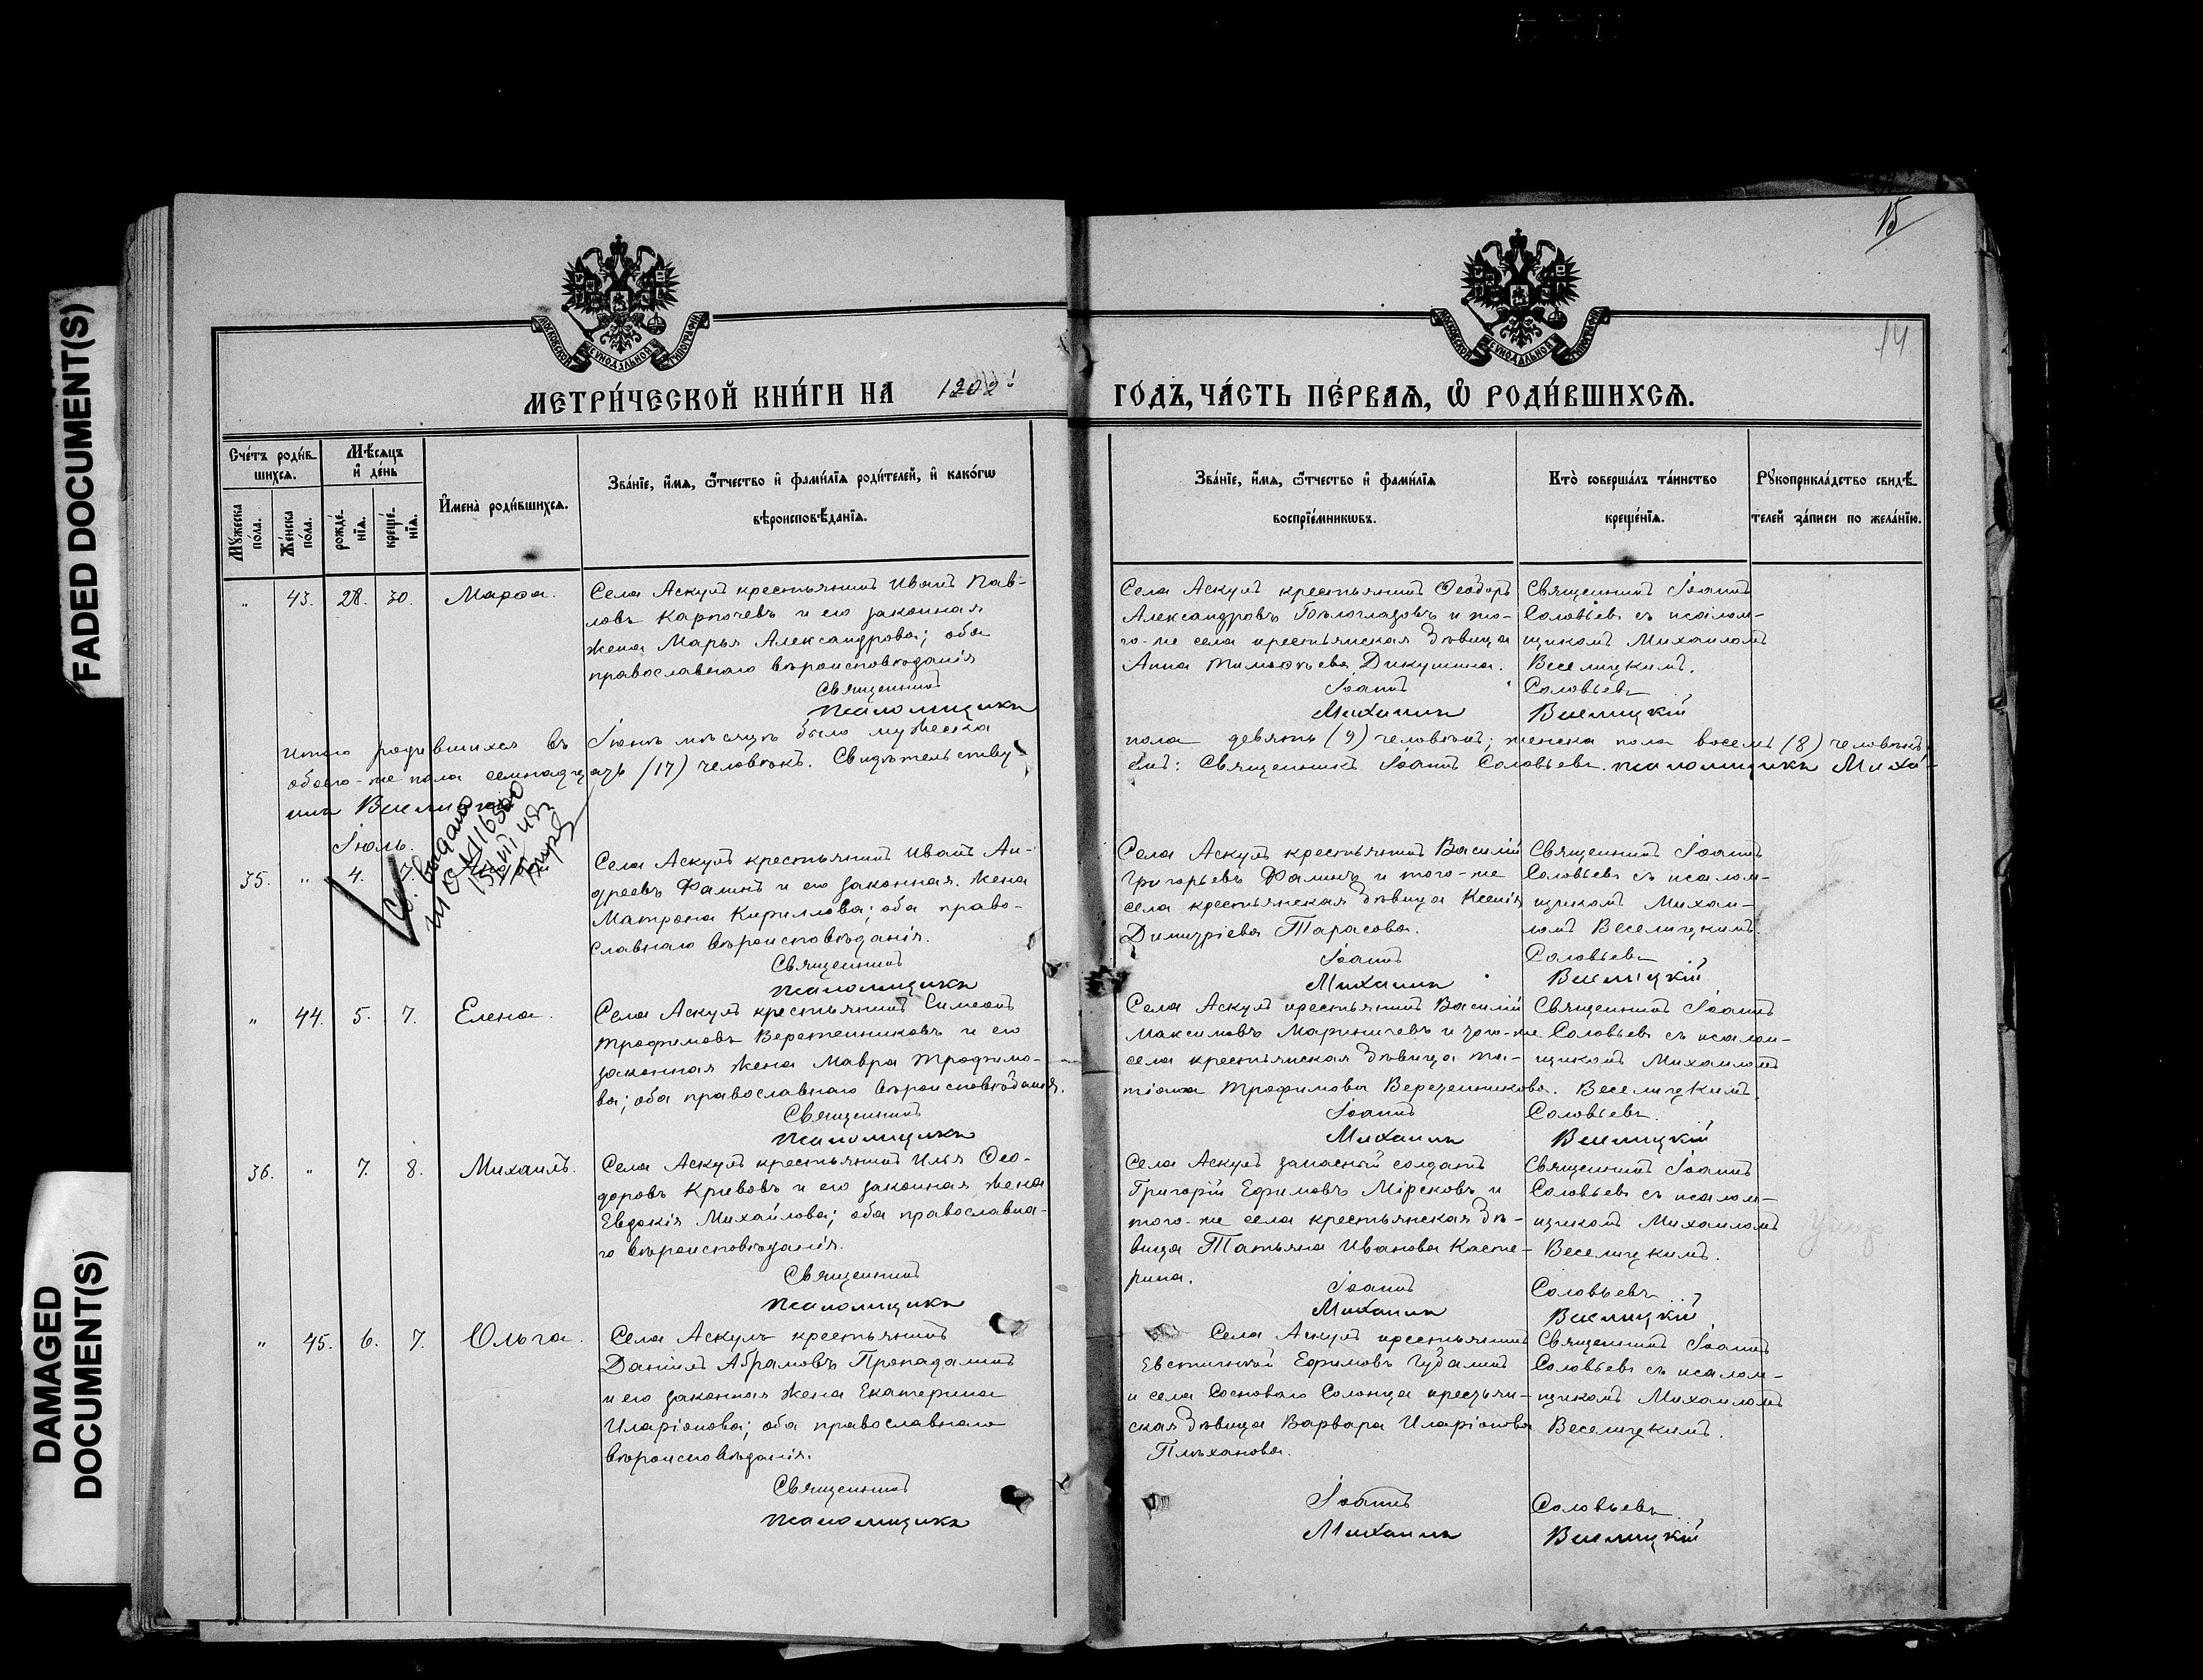 FADED DOCUMENT(S)
DAMAGED
DOCUMENT(S)
15
14
МОСКОВСКОЙ СѴНОДАЛЬНОЙ ТИПОГРАФІИ
МОСКОВСКОЙ СѴНОДАЛЬНОЙ ТИПОГРАФІИ
МЕТРИ́ЧЕСКОЙ КНИ́ГИ НА
ГОДЪ, ЧА́СТЬ ПЕ́РВАѦ, Ѡ РОДИ́ВШИХСѦ.
Сче́тъ роди́в-
шихсѧ.
Мѣ́сѧцъ
и҆ де́нь
Мꙋ́жеска по́ла.
Же́нска по́ла.
рожде́-нїѧ.
креще́-нїѧ.
И҆мена̀ роди́вшихсѧ.
Зва́нїе, и҆́мѧ, ѻ҆́тчество и҆ фами́лїѧ роди́телей, и҆ како́гѡ
вѣроисповѣ́данїѧ.
Зва́нїе, и҆́мѧ, ѻ҆́тчество и҆ фами́лїѧ
воспрїе́мникѡвъ.
Кто̀ соверша́лъ та́инство
креще́нїѧ.
Рꙋкоприкла́дство свидѣ́-
телей за́писи по жела́нїю.
" 43. 28. 30. Марѳа.
Села Аскулъ крестьянинъ Иванъ Пав-
ловъ Карпочевъ и его законная
жена Марья Александрова; оба
православнаго вѣроисповѣданія
Священникъ
Псаломщикъ
Села Аскулъ крестьянинъ Ѳеодоръ
Александровъ Бѣлоглазовъ и то-
го-же села крестьянская дѣвица
Анна Тимоѳѣева Дикушина.
Іоаннъ
Михаилъ
Священникъ Іоаннъ
Соловьевъ съ псалом-
щикомъ Михаиломъ
Веселицкимъ.
Соловьевъ
Веселицкій
Итого родившихся въ Іюнѣ мѣсяцѣ было мужеска пола девять (9) человѣкъ; женска пола восемь (8) человѣкъ
обоего-же пола семнадцать (17) человѣкъ. Свидѣтельству-
емъ: Священникъ Іоаннъ Соловьевъ. Псаломщикъ Миха-
илъ Веселицкій
Іюль.
35. " 4.
выдано
Села Аскулъ крестьянинъ Иванъ Ан-
дреевъ Фалинъ и его законная жена
Матрона Кириллова; оба право-
славнаго вѣроисповѣданія.
Священникъ
Псаломщикъ
Села Аскулъ крестьянинъ Василій
Григорьевъ Фалинъ и того-же
села крестьянская дѣвица Ксенія
Димитріева Тарасова.
Іоаннъ
Михаилъ
Священникъ Іоаннъ
Соловьевъ съ псалом-
щикомъ Михаи-
ломъ Веселицкимъ.
Соловьевъ
Веселицкій
" 44. 5. 7. Елена.
Села Аскулъ крестьянинъ Симеонъ
Трофимовъ Веретенниковъ и его
законная жена Мавра Трофимо-
ва; оба православнаго вѣроисповѣданія.
Священникъ
Псаломщикъ
Села Аскулъ крестьянинъ Василій
Максимовъ Мариничевъ и того-же
села крестьянская дѣвица Та-
тіана Трофимова Веретенникова.
Іоаннъ
Михаилъ
Священникъ Іоаннъ
Соловьевъ съ псалом-
щикомъ Михаиломъ
Веселицкимъ.
Соловьевъ.
Веселицкій
36. " 7. 8. Михаилъ.
Села Аскулъ крестьянинъ Илья Ѳео-
доровъ Кривовъ и его законная жена
Евдокія Михайлова; оба православна-
го вѣроисповѣданія.
Священникъ
Псаломщикъ
Села Аскулъ запасный солдатъ
Григорій Ефимовъ Мірсковъ и
того-же села крестьянская дѣ-
вица Татьяна Иванова Касте-
рина.
Іоаннъ
Михаилъ
Священникъ Іоаннъ
Соловьевъ съ псалом-
щикомъ Михаиломъ
Веселицкимъ.
Соловьевъ
Веселицкій
Умер
" 45. 6. 7. Ольга.
Села Аскулъ крестьянинъ
Даніилъ Абрамовъ Пропадалинъ
и его законная жена Екатерина
Иларіонова; оба православнаго
вѣроисповѣданія.
Священникъ
Псаломщикъ
Села Аскулъ крестьянинъ
Евстигней Ефимовъ Чудалинъ
и села Сосноваго Солонца крестьян-
ская дѣвица Варвара Иларіонова
Плѣханова.
Іоаннъ
Михаилъ
Священникъ Іоаннъ
Соловьевъ съ псалом-
щикомъ Михаиломъ
Веселицкимъ.
Соловьевъ
Веселицкій